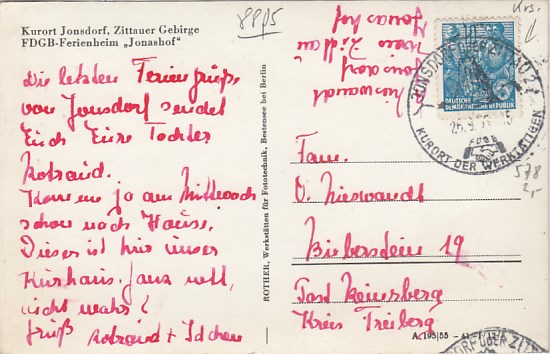 Kurort Jonsdorf, Zittauer Gebirge
FDGB-Ferienheim „Jonashof"
Die letzten Feriengrüße
von Jonsdorf sendet
Euch Eure Tochter
Rotraud.
Komme ja am Mittwoch
schon nach Hause.
Dieses ist hier unser
Kurhaus. Ganz nett,
nicht wahr?
Gruß Rotraud +
ROTHER, Werkstätten für Fototechnik, Bestensee bei Berlin
8815
Nieswandt
Jonsdorf
Kreis Zittau
Jonashof
Krs.
DEUTSCHE
DEMOKRATISCHE REPUBLIK
JONSDORF ÜBER ZITTAU
FDGB
KURORT DER WERKTÄTIGEN
578
2,-
Fam.
O. Nieswandt
Bieberstein 19
Post Reinsberg
Kreis Freiberg
A 195/55
JONSDORF ÜBER ZITTAU